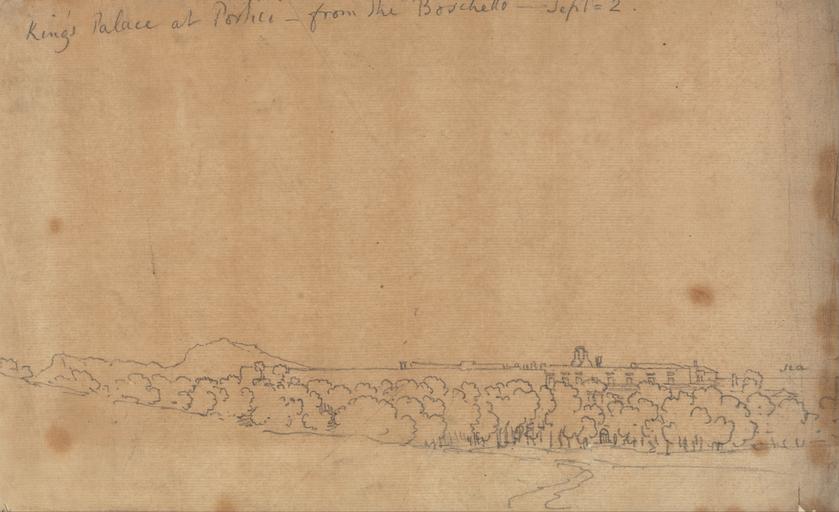 King's Palace at Portici – from the Boschetto — Sept = 2.
sea